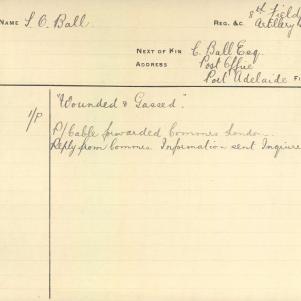 NAME L. O. Ball. REG. &c. 8th Field Artillery
NEXT OF KIN C. Ball Esq.
ADDRESS Post Office
Port Adelaide
"Wounded & Gassed".
1/P P/Cable forwarded Commons London.
Reply from Commons. Information sent Inquirer